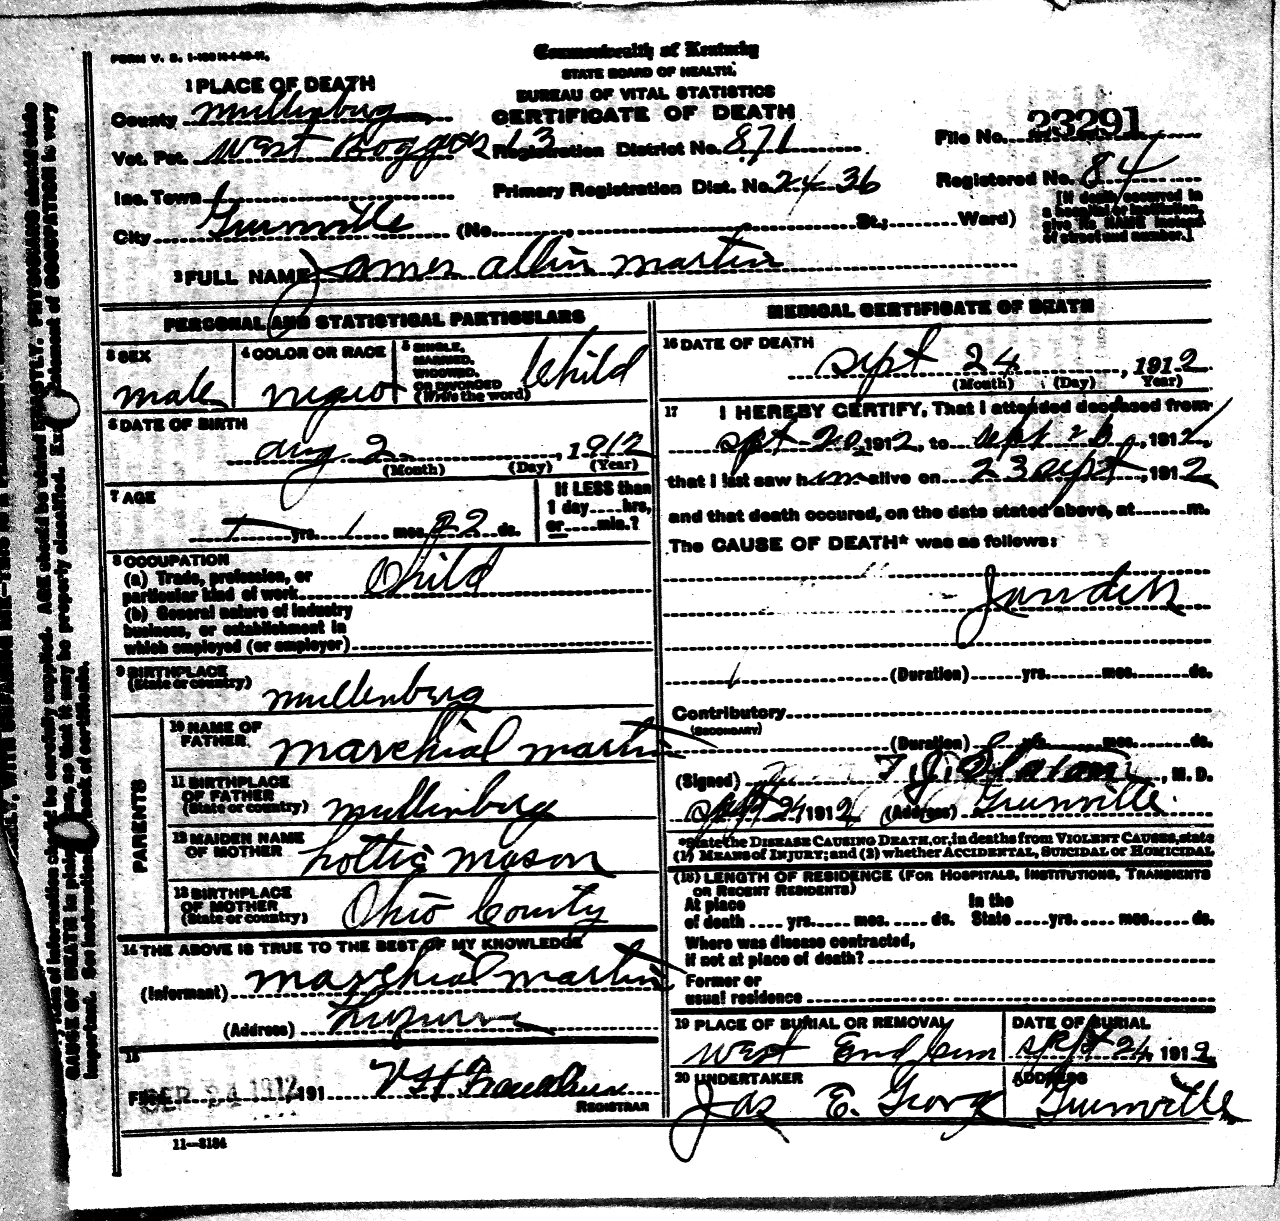 FORM V. S.
Commonwealth of Kentucky
STATE BOARD OF HEALTH.
BUREAU OF VITAL STATISTICS
CERTIFICATE OF DEATH
1 PLACE OF DEATH
County Mullenburg
Vot. Pct. West Boggess 13 Registration District No. 871
File No. 23291
Inc. Town
Primary Registration Dist. No. 2436
Registered No. 84
City Grunville (No. St.; Ward)
[If death occurred in
a hospital or institution,
give its NAME instead
of street and number.]
2 FULL NAME James Allin Martin
PERSONAL AND STATISTICAL PARTICULARS
3 SEX
male
4 COLOR OR RACE
negro
5 SINGLE,
MARRIED,
WIDOWED,
OR DIVORCED
(Write the word)
Child
6 DATE OF BIRTH
Aug 2, 1912
(Month) (Day) (Year)
7 AGE
yrs. 1 mos. 22 ds.
If LESS than
1 day.....hrs.
or.....min.?
8 OCCUPATION
(a) Trade, profession, or
particular kind of work Child
(b) General nature of industry
business, or establishment in
which employed (or employer)
9 BIRTHPLACE
(State or country) Mullenburg
PARENTS
10 NAME OF
FATHER Marchial Martin
11 BIRTHPLACE
OF FATHER
(State or country) Mullinburg
12 MAIDEN NAME
OF MOTHER Lottie Mason
13 BIRTHPLACE
OF MOTHER
(State or country) Ohio County
14 THE ABOVE IS TRUE TO THE BEST OF MY KNOWLEDGE
(Informant) Marchial Martin
(Address)
15
Filed SEP 24 1912 191
REGISTRAR
11—3184
MEDICAL CERTIFICATE OF DEATH
16 DATE OF DEATH
Sept 24, 1912
(Month) (Day) Year)
17 I HEREBY CERTIFY, That I attended deceased from
Sept 20, 1912, to Sept 23, 1912,
that I last saw him alive on 23 Sept, 1912
and that death occured, on the date stated above, at m.
The CAUSE OF DEATH* was as follows:
Jandis
(Duration) yrs. mos. ds.
Contributory
(SECONDARY)
(Duration) yrs. mos. ds.
(Signed) T. J. Slaton, M. D.
Sept 24, 1912 (Address) Grunville.
*State the DISEASE CAUSING DEATH, or, in deaths from VIOLENT CAUSES, state
(1) MEANS OF INJURY; and (2) whether ACCIDENTAL, SUICIDAL or HOMICIDAL
(18) LENGTH OF RESIDENCE (FOR HOSPITALS, INSTITUTIONS, TRANSIENTS
OR RECENT RESIDENTS)
At place In the
of death .... yrs. .... mos. .... ds. State .... yrs. .... mos. .... ds.
Where was disease contracted,
if not at place of death?
Former or
usual residence
19 PLACE OF BURIAL OR REMOVAL
West End Cem
DATE OF BURIAL
Sept 24, 1912
20 UNDERTAKER
Jas E. Georg
ADDRESS
Grunville